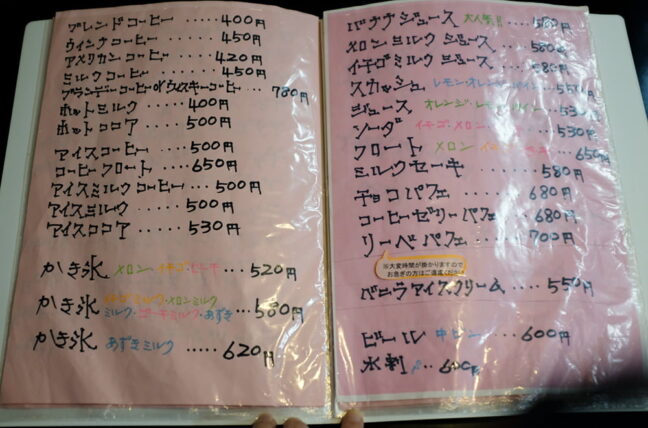 ブレンドコーヒー ····· 400円
ウィンナコーヒー ····· 450円
アメリカンコーヒー ···· 420円
ミルクコーヒー ···· 450円
ブランデーコーヒー or ウィスキーコーヒー··· 780円
ホットミルク ····· 400円
ホットココア ····· 500円
アイスコーヒー ····· 500円
コーヒーフロート ···· 650円
アイスミルクコーヒー ··· 500円
アイスミルク ····· 500円
アイスココア ····· 530円
かき氷 メロン·イチゴ·ピーチ ··· 520円
かき氷 イチゴミルク·メロンミルク
ミルク·ピーチミルク·あずき ··· 580円
かき氷 あずきミルク ····· 620円
バナナジュース 大人気!!
メロンミルクジュース ··· 580円
イチゴミルクジュース ··· 580円
スカッシュ レモン·オレンジ
ジュース オレンジ 530円
ソーダ イチゴ·メロン 530円
フロート メロン 650円
ミルクセーキ ····· 580円
チョコパフェ ···· 680円
コーヒーゼリーパフェ ··· 680円
リーベパフェ ···· 700円
※大変時間が掛かりますので
お急ぎの方はご遠慮ください
バニラアイスクリーム ···· 550円
ビール 中ビン ··· 600円
水割 600円